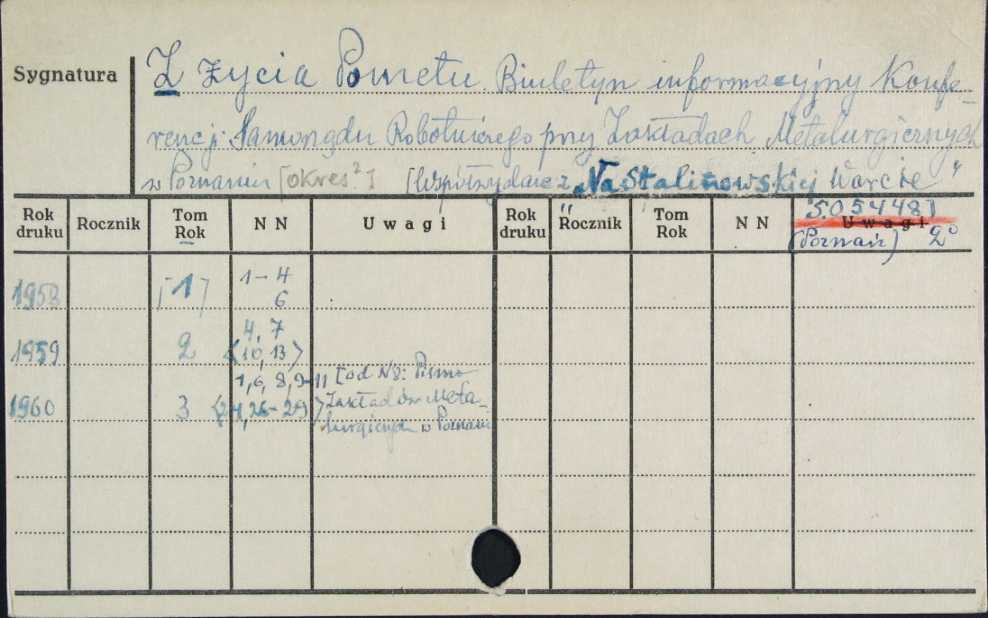 Sygnatura
Z życia Pometu. Biuletyn informacyjny Konfe-
rencji Samorządu Robotniczego przy Zakładach Metalurgicznych
w Poznaniu [okres²] [Współwydawca „Na Stalinowskiej Warcie"
505448]
(Poznań) 2°
Rok druku Rocznik Tom Rok N N Uwagi Rok druku Rocznik Tom Rok N N Uwagi
1958 [1] 1-4
6
1959 2 4, 7
<10, 13>
1960 3 1, 6, 8, 9-11 [od N8: Pismo
<24, 26-29> Zakładów Meta-
lurgicznych w Poznaniu